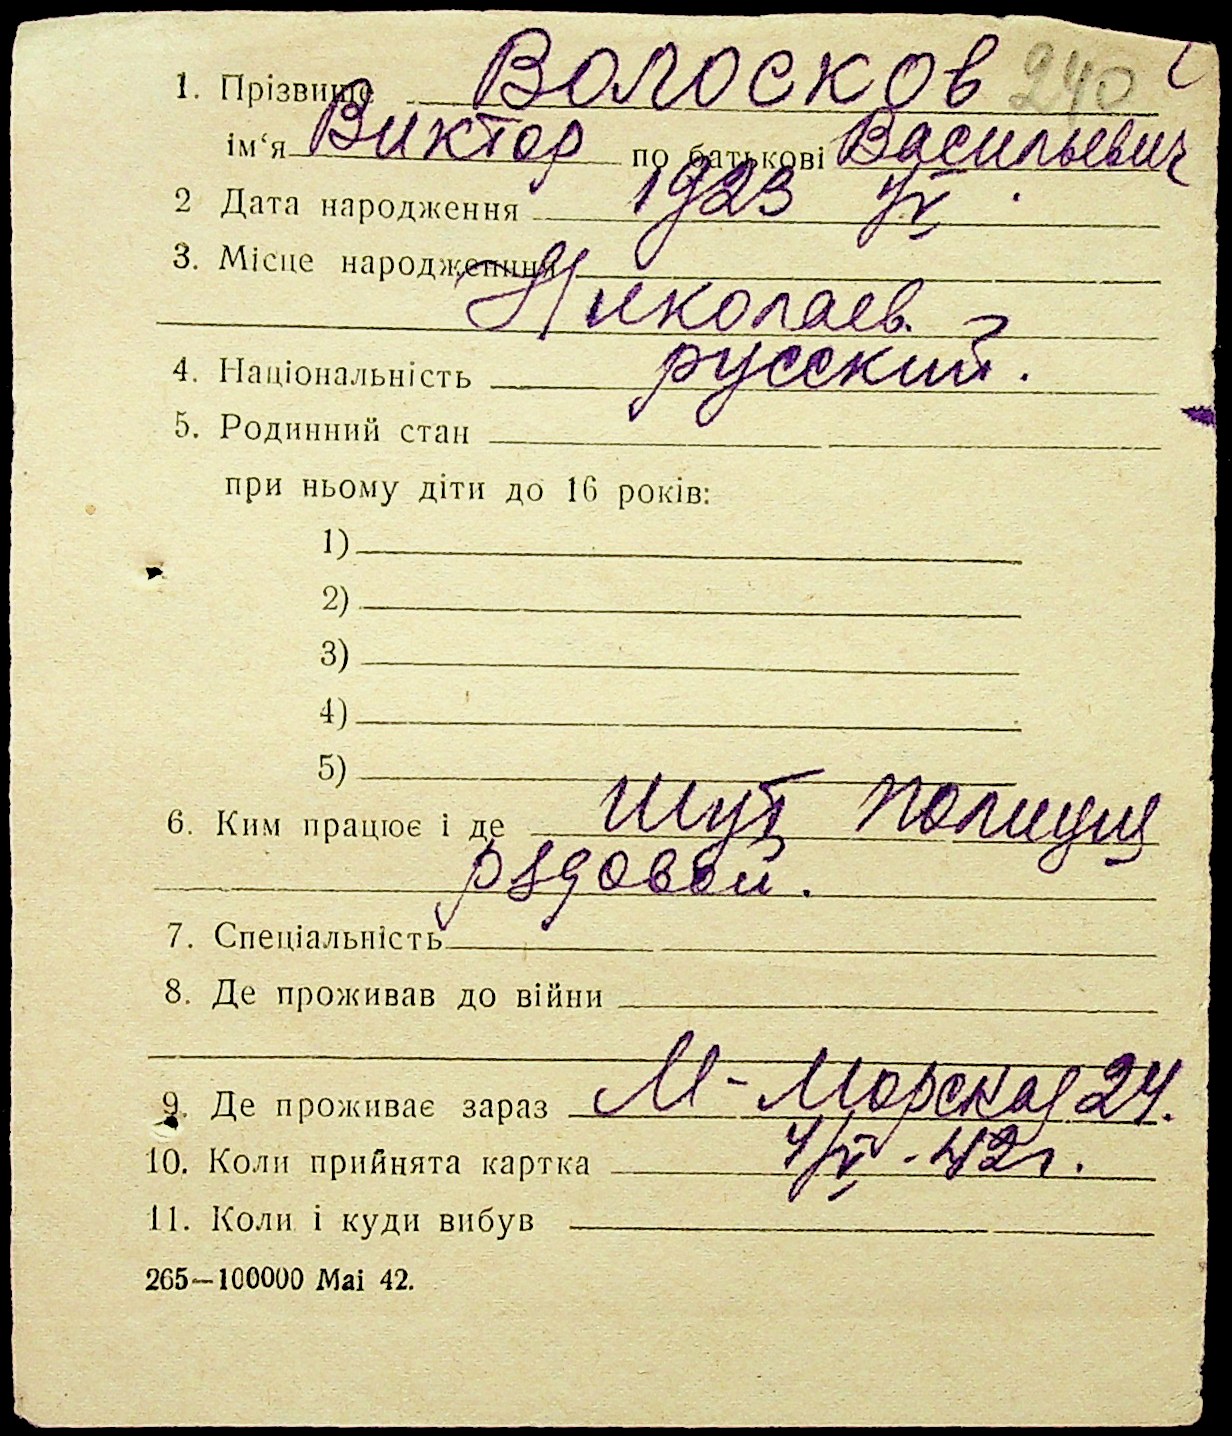 1. Прізвище Волосков 240
ім‘я Виктор по батькові Васильевич
2 Дата народження 1923
3. Місце народження
Николаев.
4. Національність русский.
5. Родинний стан
при ньому діти до 16 років:
1)
2)
3)
4)
5)
6. Ким працює і де полиции
рядовой.
7. Спеціальність
8. Де проживав до війни
9. Де проживає зараз М-Морская 24.
10. Коли прийнята картка 4/V-42г.
11. Коли і куди вибув
265—100000 Mai 42.